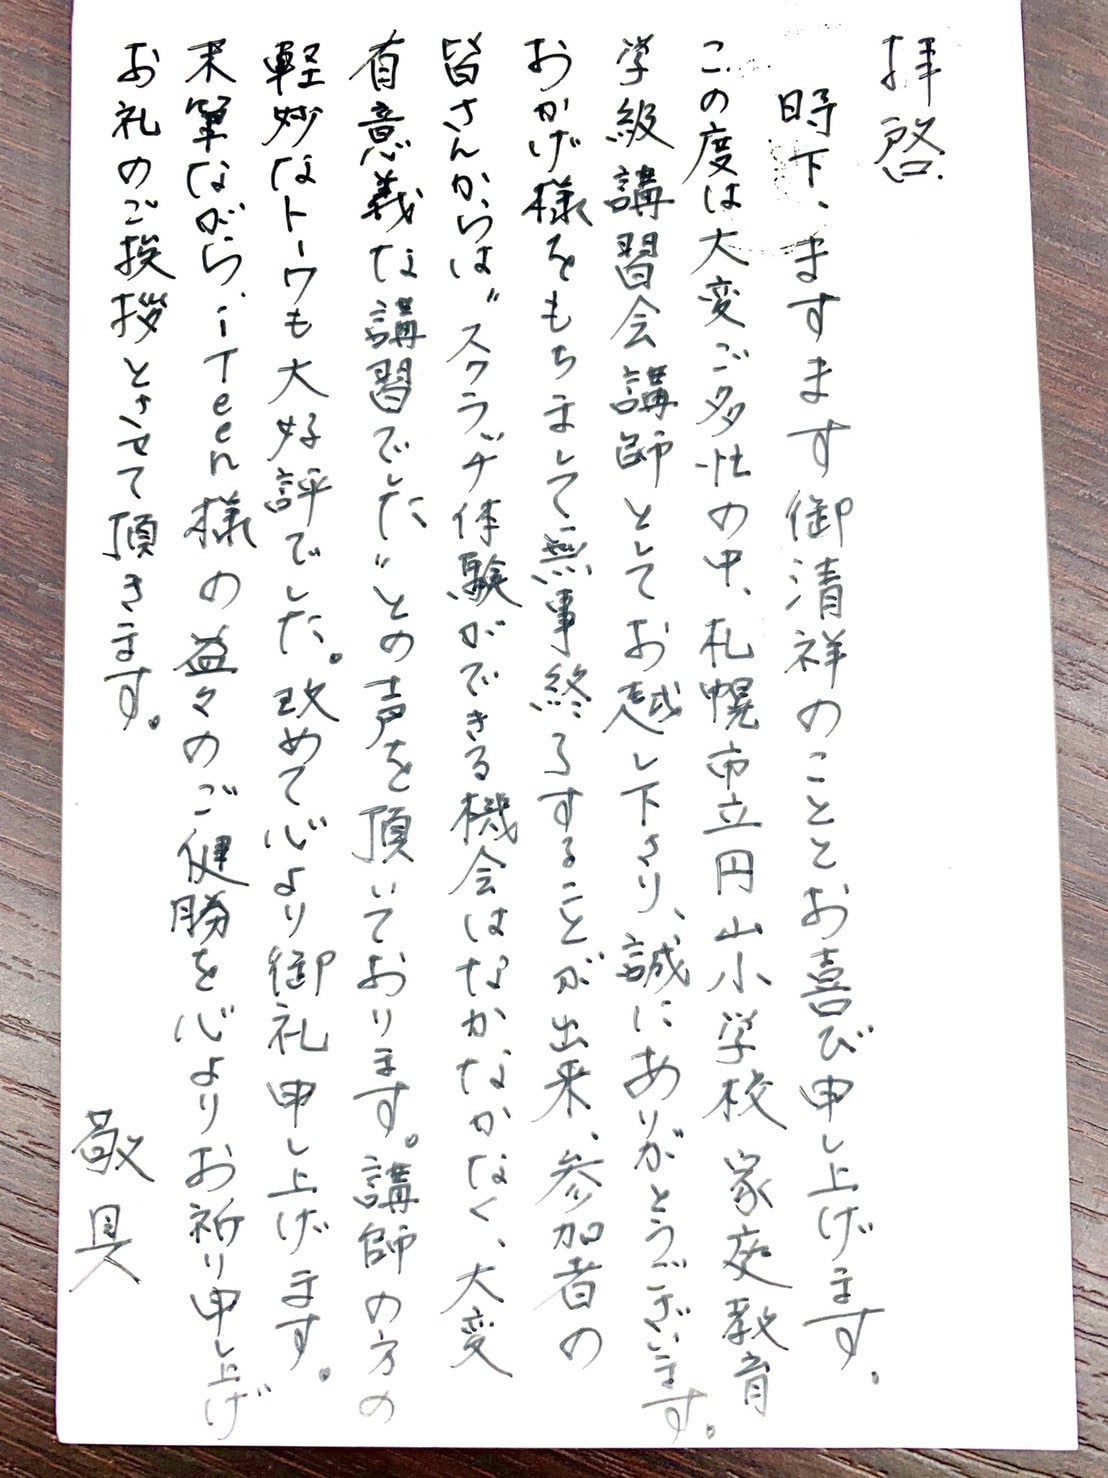 拝啓
時下、ますます御清祥のこととお喜び申し上げます。
この度は大変ご多忙の中、札幌市立円山小学校 家庭教育
学級講習会講師としてお越し下さり、誠にありがとうございます。
おかげ様をもちまして無事終了することが出来、参加者の
皆さんからは〝スクラッチ体験ができる機会はなかなかなく、大変
有意義な講習でした〟との声を頂いております。講師の方の
軽妙なトークも大好評でした。改めて心より御礼申し上げます。
末筆ながら、iTeen様の益々のご健勝を心よりお祈り申し上げ
お礼のご挨拶とさせて頂きます。
敬具